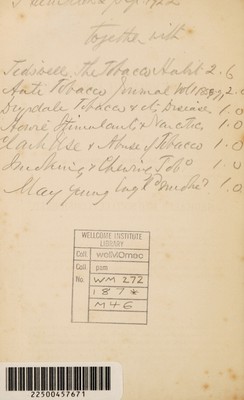 together with
Tidswell. The Tobacco Habit 2.6
Anti Tobacco Journal Vol 2.0
Drysdale Tobacco & its Diseases 1.0
Stimulants & Narcotics 1.0
Clark Use & Abuse of Tobacco 1.0
Smoking & Chewing Tobº 1.0
May young Smoke? 1.0
WELLCOME INSTITUTE
LIBRARY
Coll. welMOmec
Call pam
No. WM 272
187*
M46
22500457671